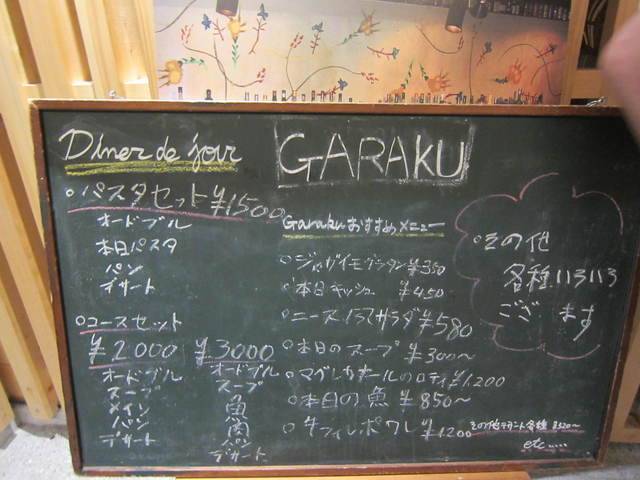 Diner de jour
GARAKU
○パスタセット ¥1500
オードブル
本日パスタ
パン
デザート
○コースセット
¥2000
オードブル
スープ
メイン
パン
デザート
¥3000
オードブル
スープ
魚
肉
パン
デザート
Garakuおすすめメニュー
○ジャガイモグラタン ¥350
○本日キッシュ ¥450
○ニース風サラダ ¥580
○本日のスープ ¥300～
○マグレカナールのロティ ¥1,200
○本日の魚 ¥850～
○牛フィレポワレ ¥1200
○その他
各種いろいろ
ございます
その他デザート各種
etc.....